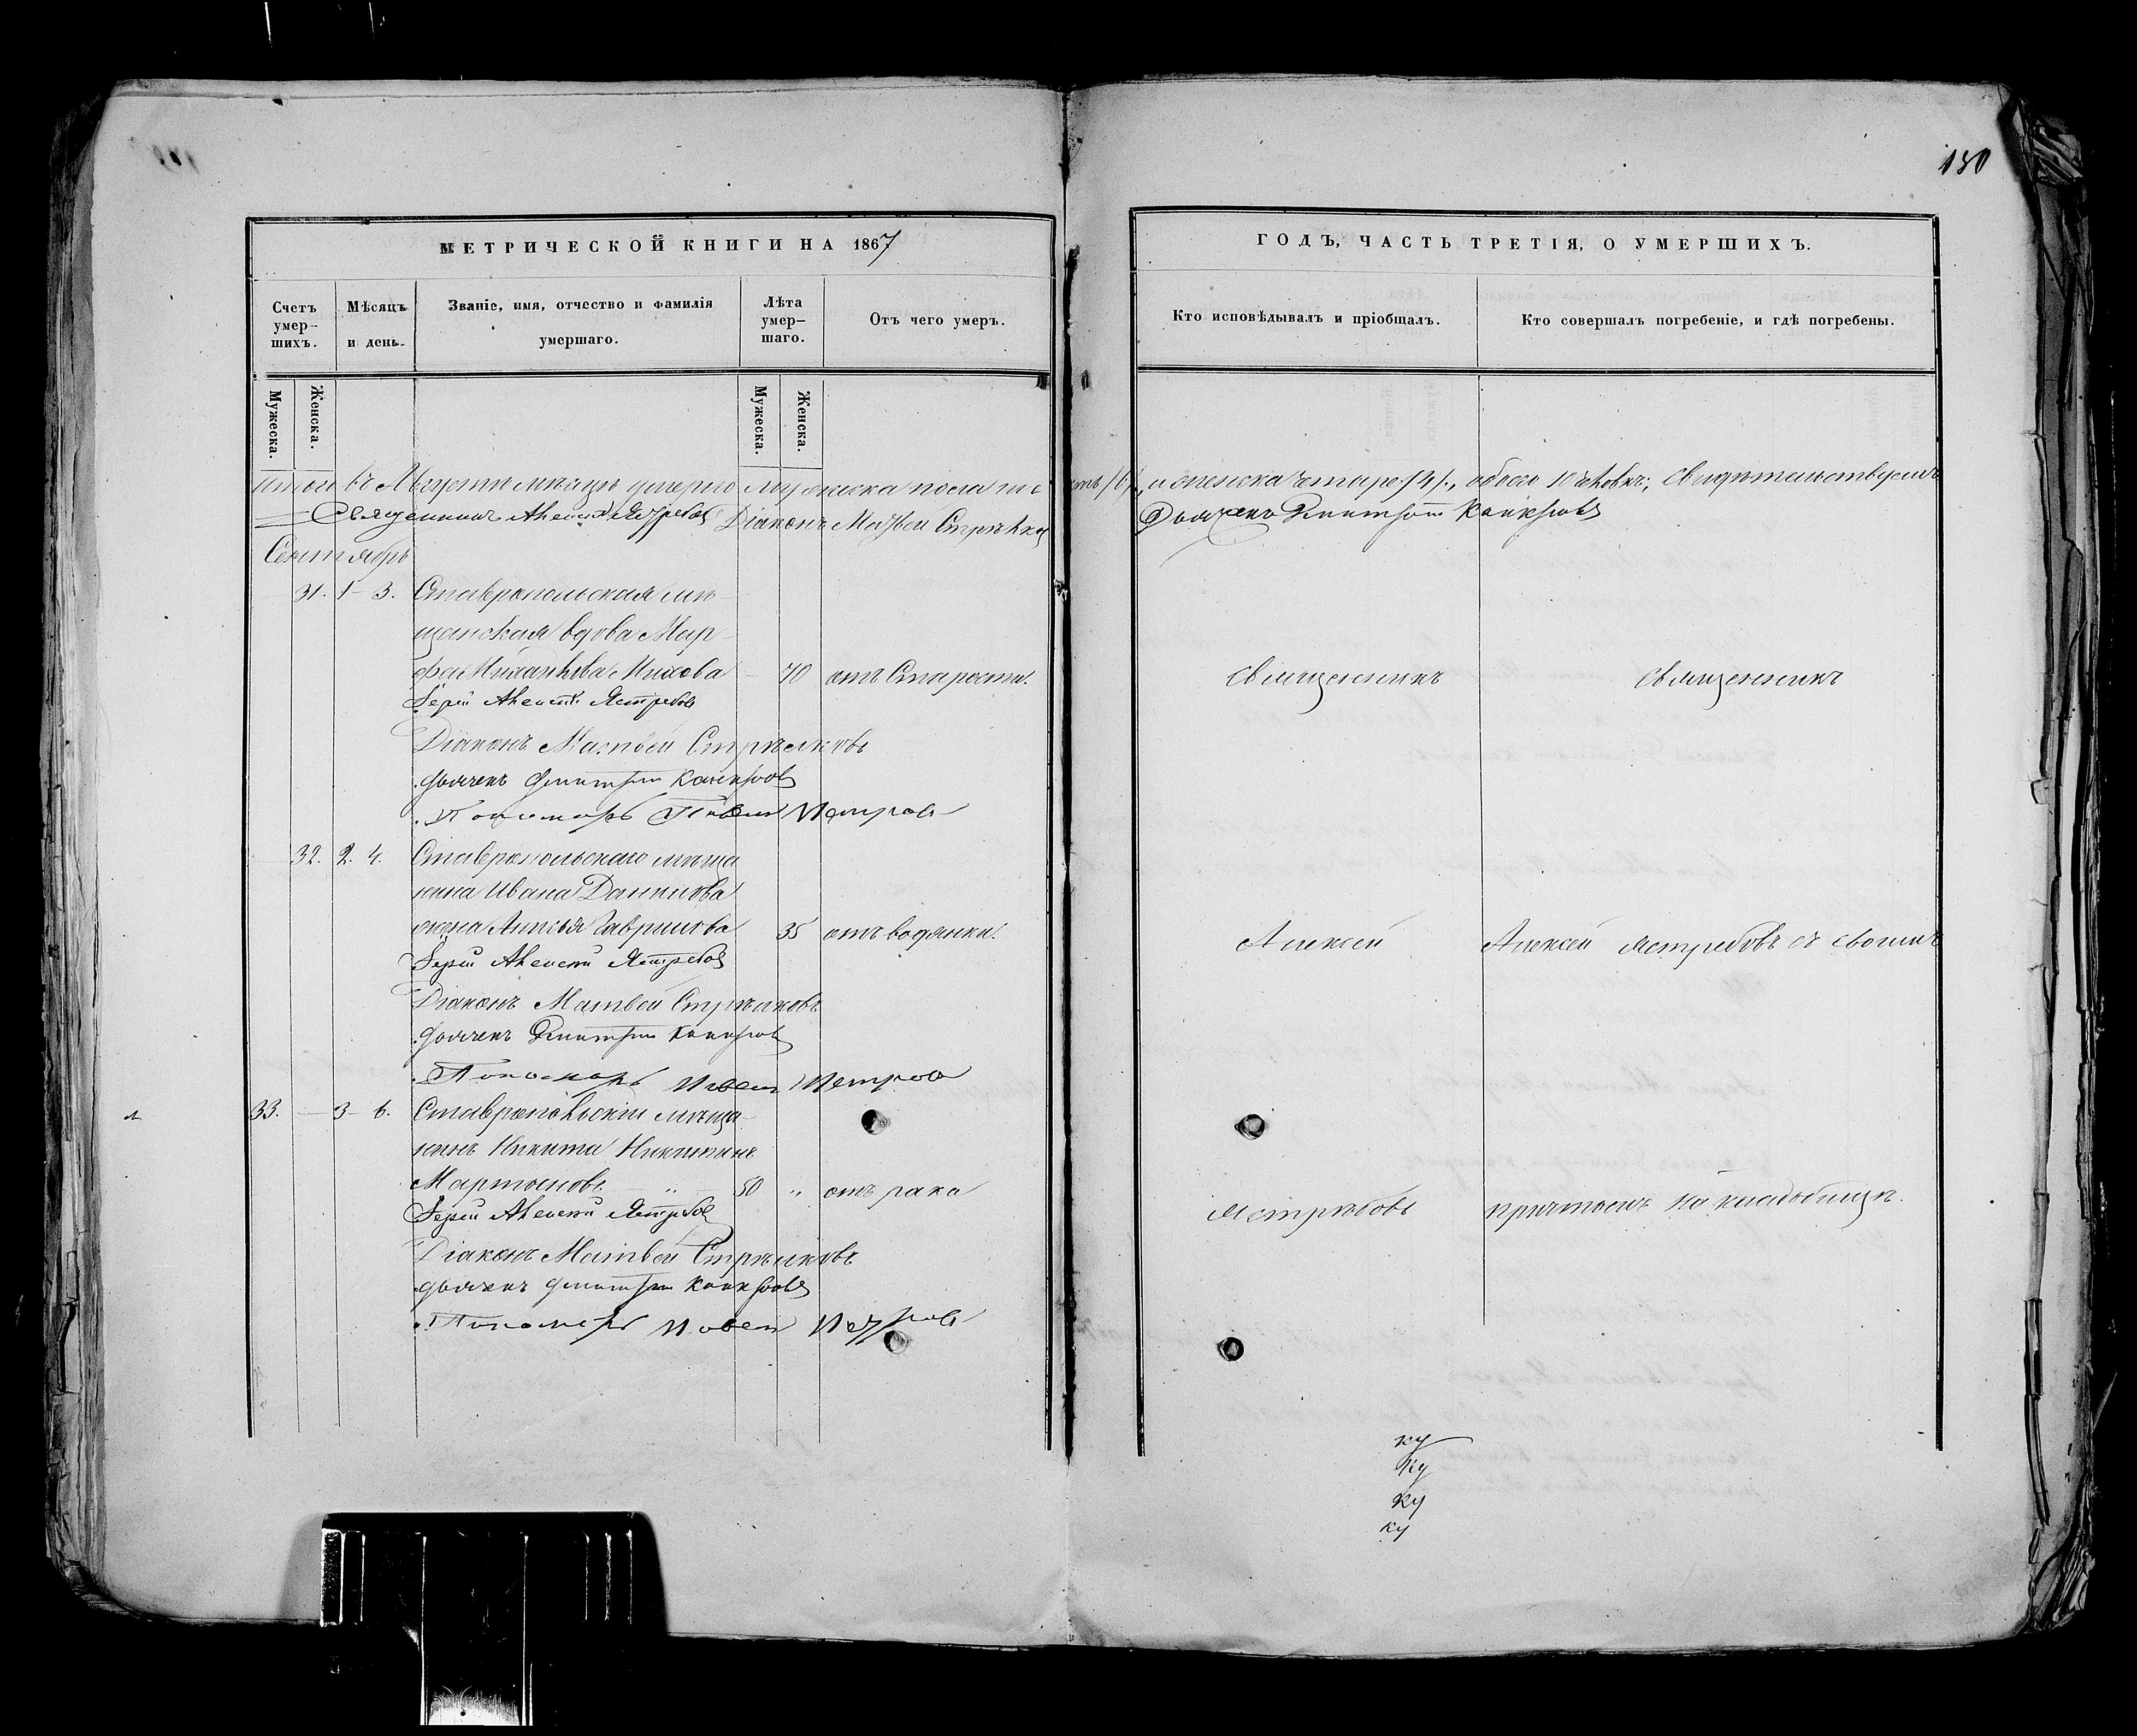 130
МЕТРИЧЕСКОЙ КНИГИ НА 1867
ГОДЪ, ЧАСТЬ ТРЕТІЯ, О УМЕРШИХЪ.
Счетъ умер-шихъ.
Мѣсяцъ и день.
Званіе, имя, отчество и фамилія умершаго.
Лѣта умер-шаго.
Отъ чего умеръ.
Кто исповѣдывалъ и пріобщалъ.
Кто совершалъ погребеніе, и гдѣ погребены.
Мужеска.
Женска.
Мужеска.
Женска.
Итого въ Августѣ мѣсяцѣ умерло мужеска пола
женска четыре /4/., обоего 10 человкъ; Свидѣтельствуемъ
Священникъ Алексѣй Ястребовъ Діаконъ Матвей Стрѣлков
Дьячекъ Дмитрій
Сентябрь
31. 1 - 3. Ставропольская мѣ
щанская вдова Мар-
фа Михайлова 70 отъ Старости. Священникъ Священникъ
Іерей Алексѣй Ястребов
Діаконъ Матвей Стрѣлковъ
дьячекъ Дмитрій
Пономарь Павелъ Петровъ
32. 2. 4. Ставропольскаго мѣща
нина Ивана Данилова
жена Гаврилова 35 отъ водянки. Алексей Алексей Ястребовъ съ своимъ
Іерей Алексѣй Ястребов
Діаконъ Матвей Стрѣлковъ
дьячекъ Дмитрій
Пономарь Павелъ Петров
33. — 3 - 6. Ставропольскій мѣща-
нинъ Никита Никитинъ
Мартыновъ — „ — 50 „ отъ рака Ястребовъ причтомъ на кладбищѣ.
Іерей Алексѣй Ястребов
Діаконъ Матвей Стрѣлковъ
дьячекъ Дмитрій
Пономарь Павелъ Петровъ
ку
ку
ку
ку